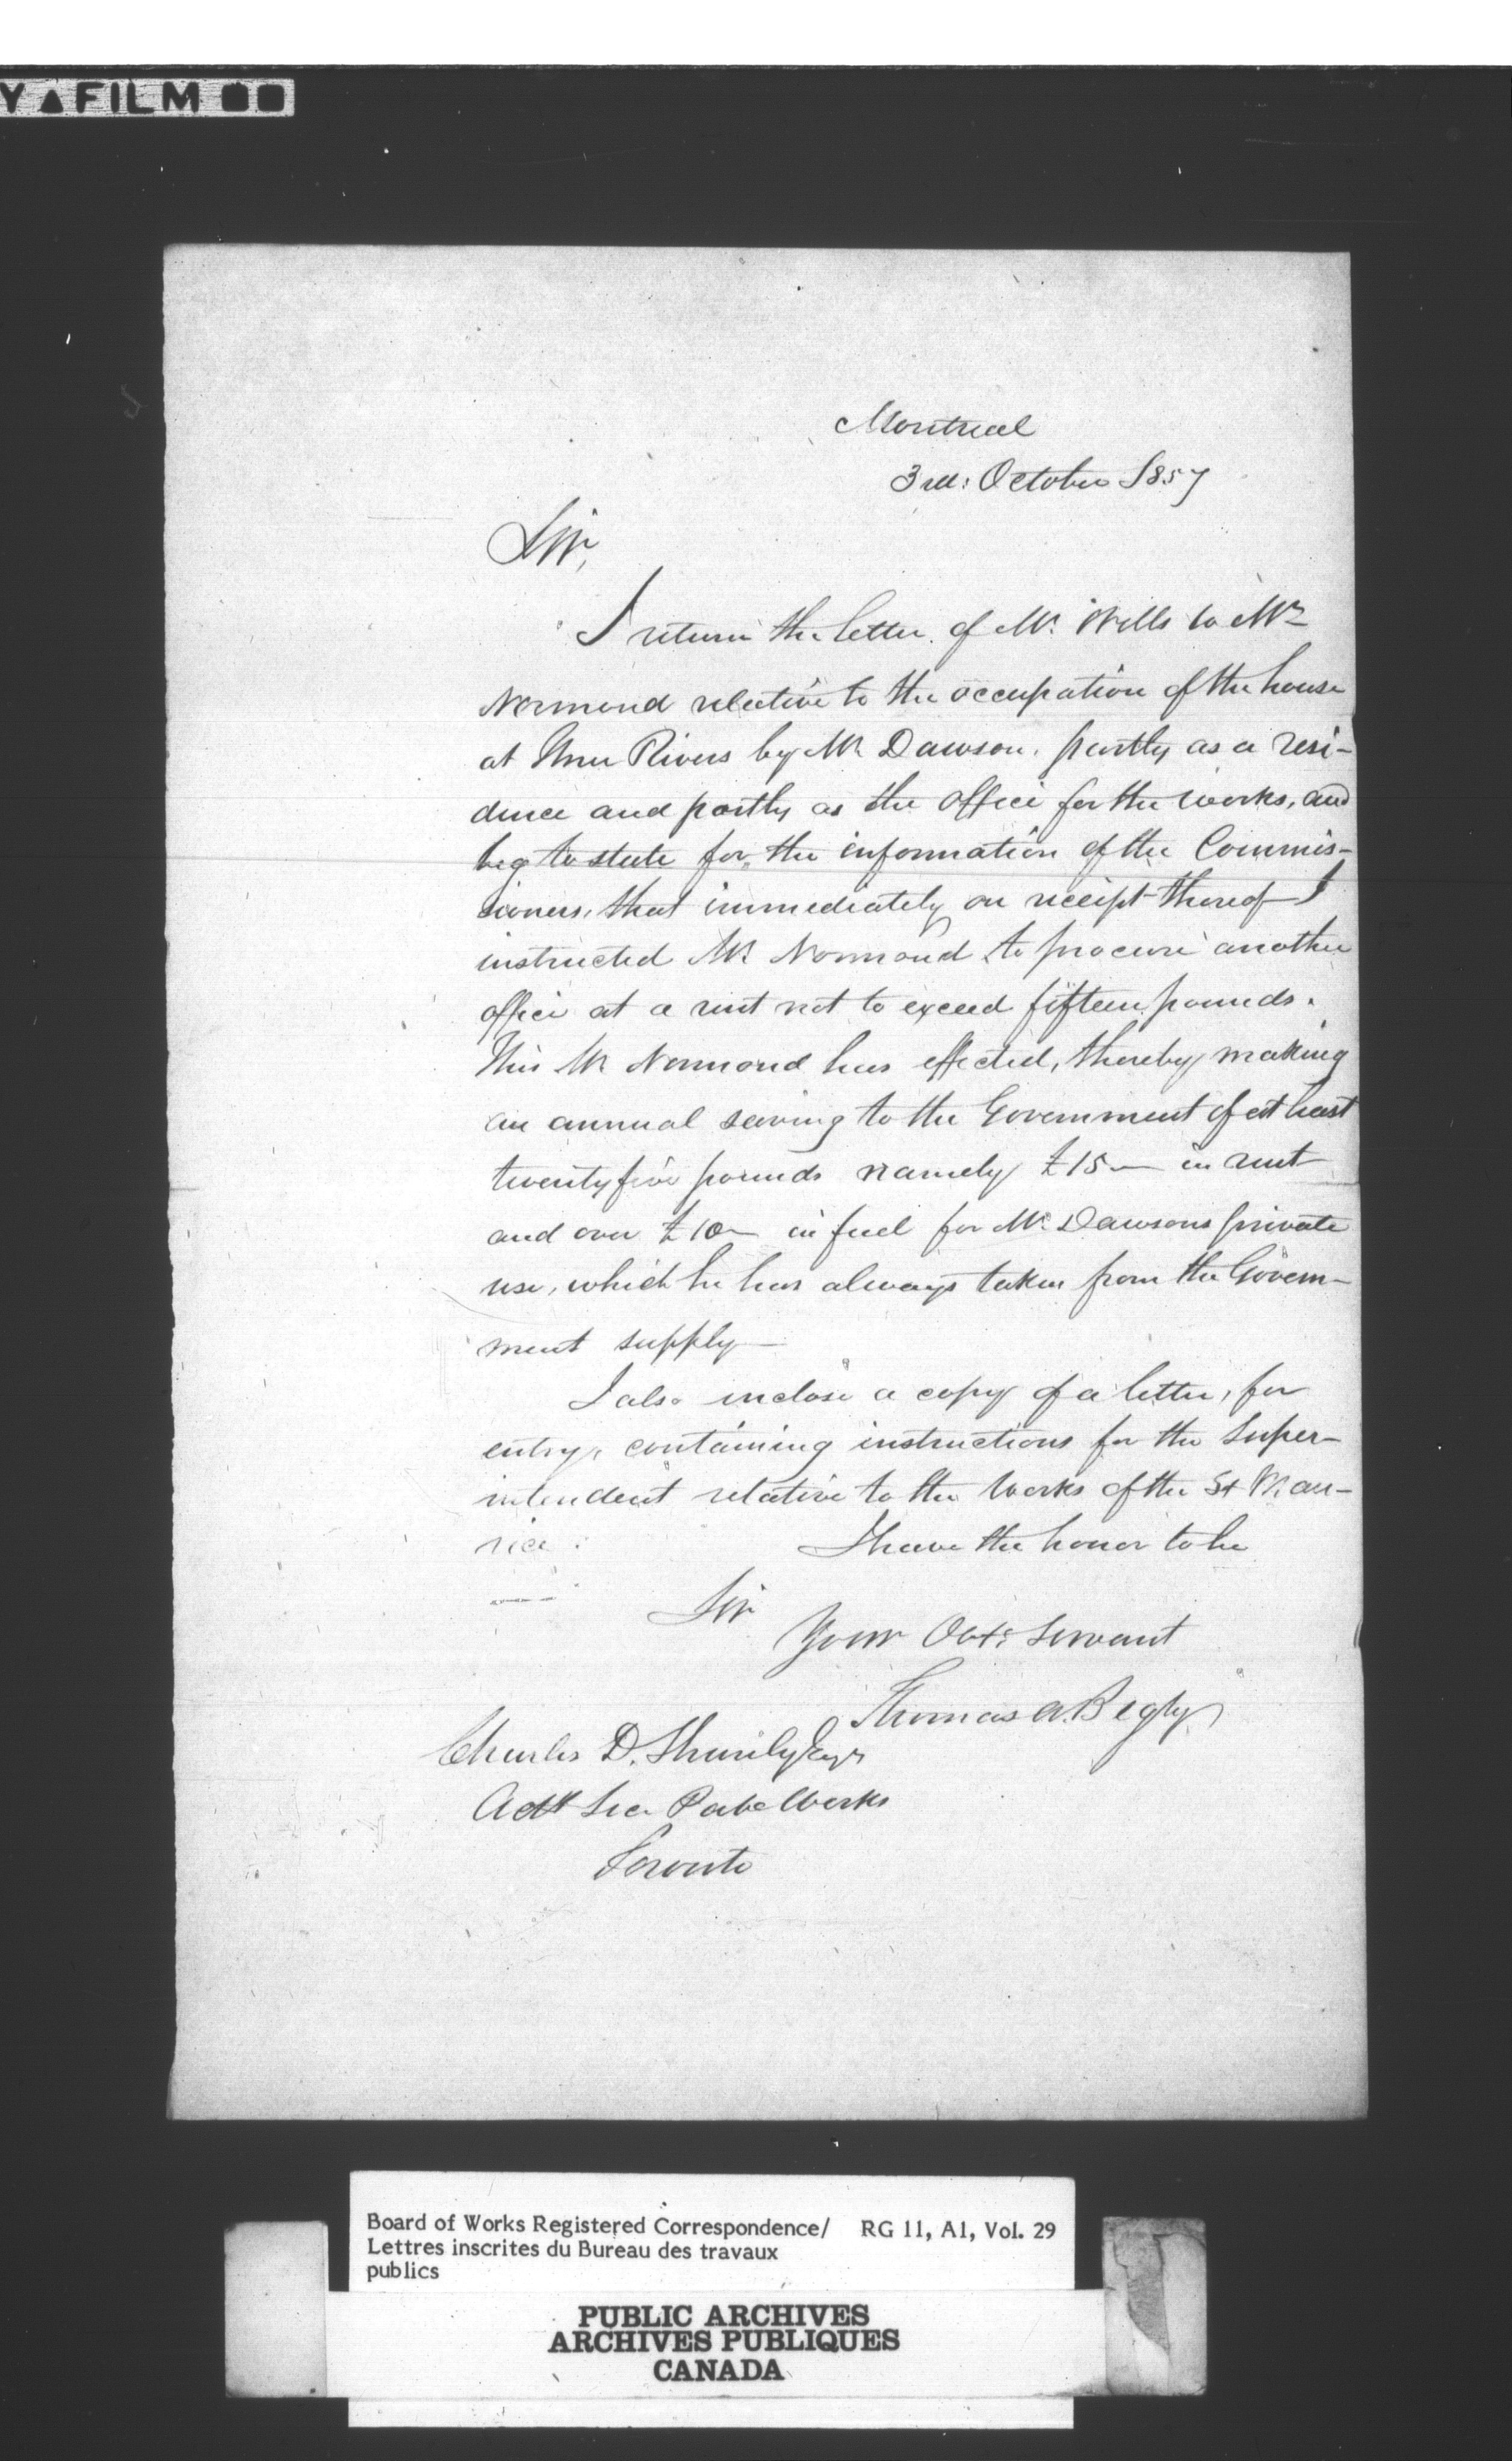 Y▲FILM
Montreal
3rd: October 1857
Sir,
I return the letter of Mr. Wells to Mr
Normand relative to the occupation of the house
at Three Rivers by Mr Dawson, partly as a resi-
dence and partly as the office for the works, and
beg to state for the information of the Commis-
sioners, that immediately on receipt thereof I
instructed Mr Normand to procure another
office at a rent not to exceed fifteen pounds.
This Mr Normand has effected, thereby making
an annual saving to the Government of at least
twenty five pounds namely £15 — in rent
and over £10 — in fuel for Mr Dawsons private
use, which he has always taken from the Govern-
ment supply —
I also inclose a copy of a letter, for
entry, containing instructions for the Super-
intendent relative to the works of the St Mau-
rice.
I have the honor to be
Sir
Your Obt: Servant
Thomas A. Begly
Charles D. Shanly Esqr
Act Sec Public Works
Toronto
Board of Works Registered Correspondence/ RG 11, A1, Vol. 29
Lettres inscrites du Bureau des travaux
publics
PUBLIC ARCHIVES
ARCHIVES PUBLIQUES
CANADA